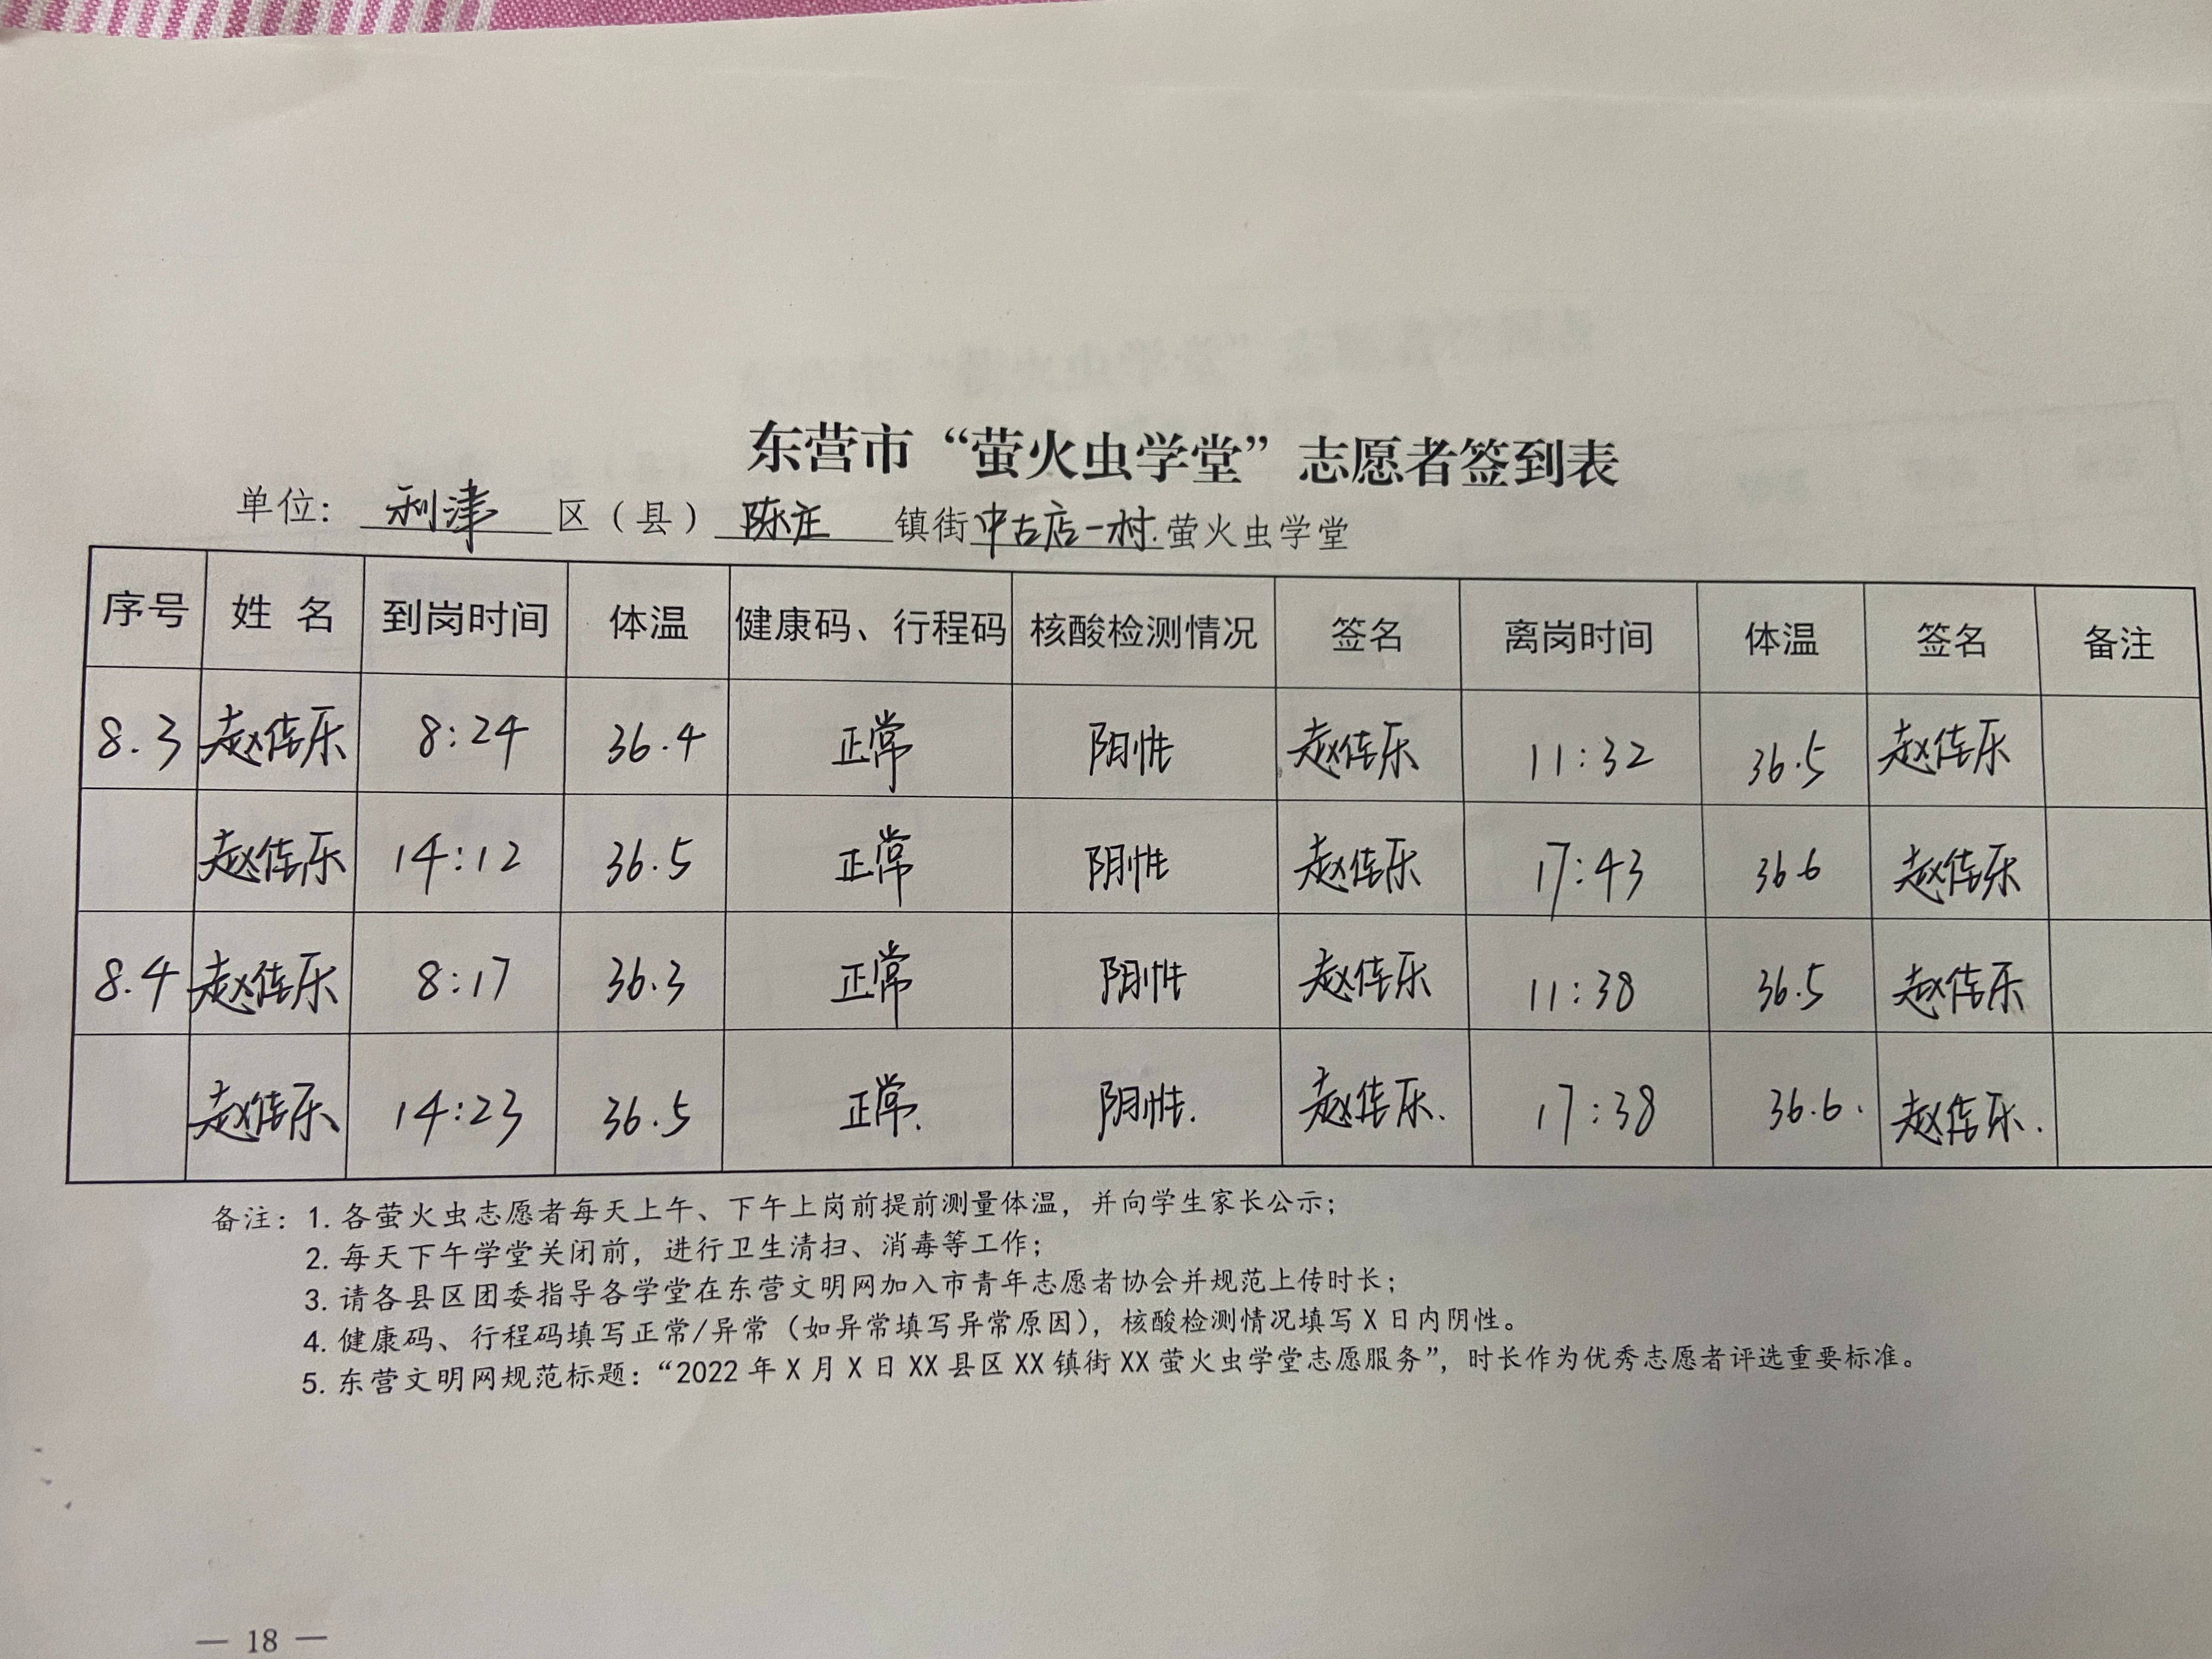 东营市“萤火虫学堂”志愿者签到表
单位: 利津 区（县） 陈庄 镇街 中古店一村. 萤火虫学堂
序号 姓名 到岗时间 体温 健康码、行程码 核酸检测情况 签名 离岗时间 体温 签名 备注
8.3 赵佳乐 8:24 36.4 正常 阴性 赵佳乐 11:32 36.5 赵佳乐
赵佳乐 14:12 36.5 正常 阴性 赵佳乐 17:43 36.6 赵佳乐
8.4 赵佳乐 8:17 36.3 正常 阴性 赵佳乐 11:38 36.5 赵佳乐
赵佳乐 14:23 36.5 正常. 阴性. 赵佳乐. 17:38 36.6. 赵佳乐.
备注: 1. 各萤火虫志愿者每天上午、下午上岗前提前测量体温，并向学生家长公示;
2. 每天下午学堂关闭前，进行卫生清扫、消毒等工作;
3. 请各县区团委指导各学堂在东营文明网加入市青年志愿者协会并规范上传时长;
4. 健康码、行程码填写正常/异常（如异常填写异常原因），核酸检测情况填写 X 日内阴性。
5. 东营文明网规范标题: “2022 年 X 月 X 日 XX 县区 XX 镇街 XX 萤火虫学堂志愿服务”，时长作为优秀志愿者评选重要标准。
— 18 —